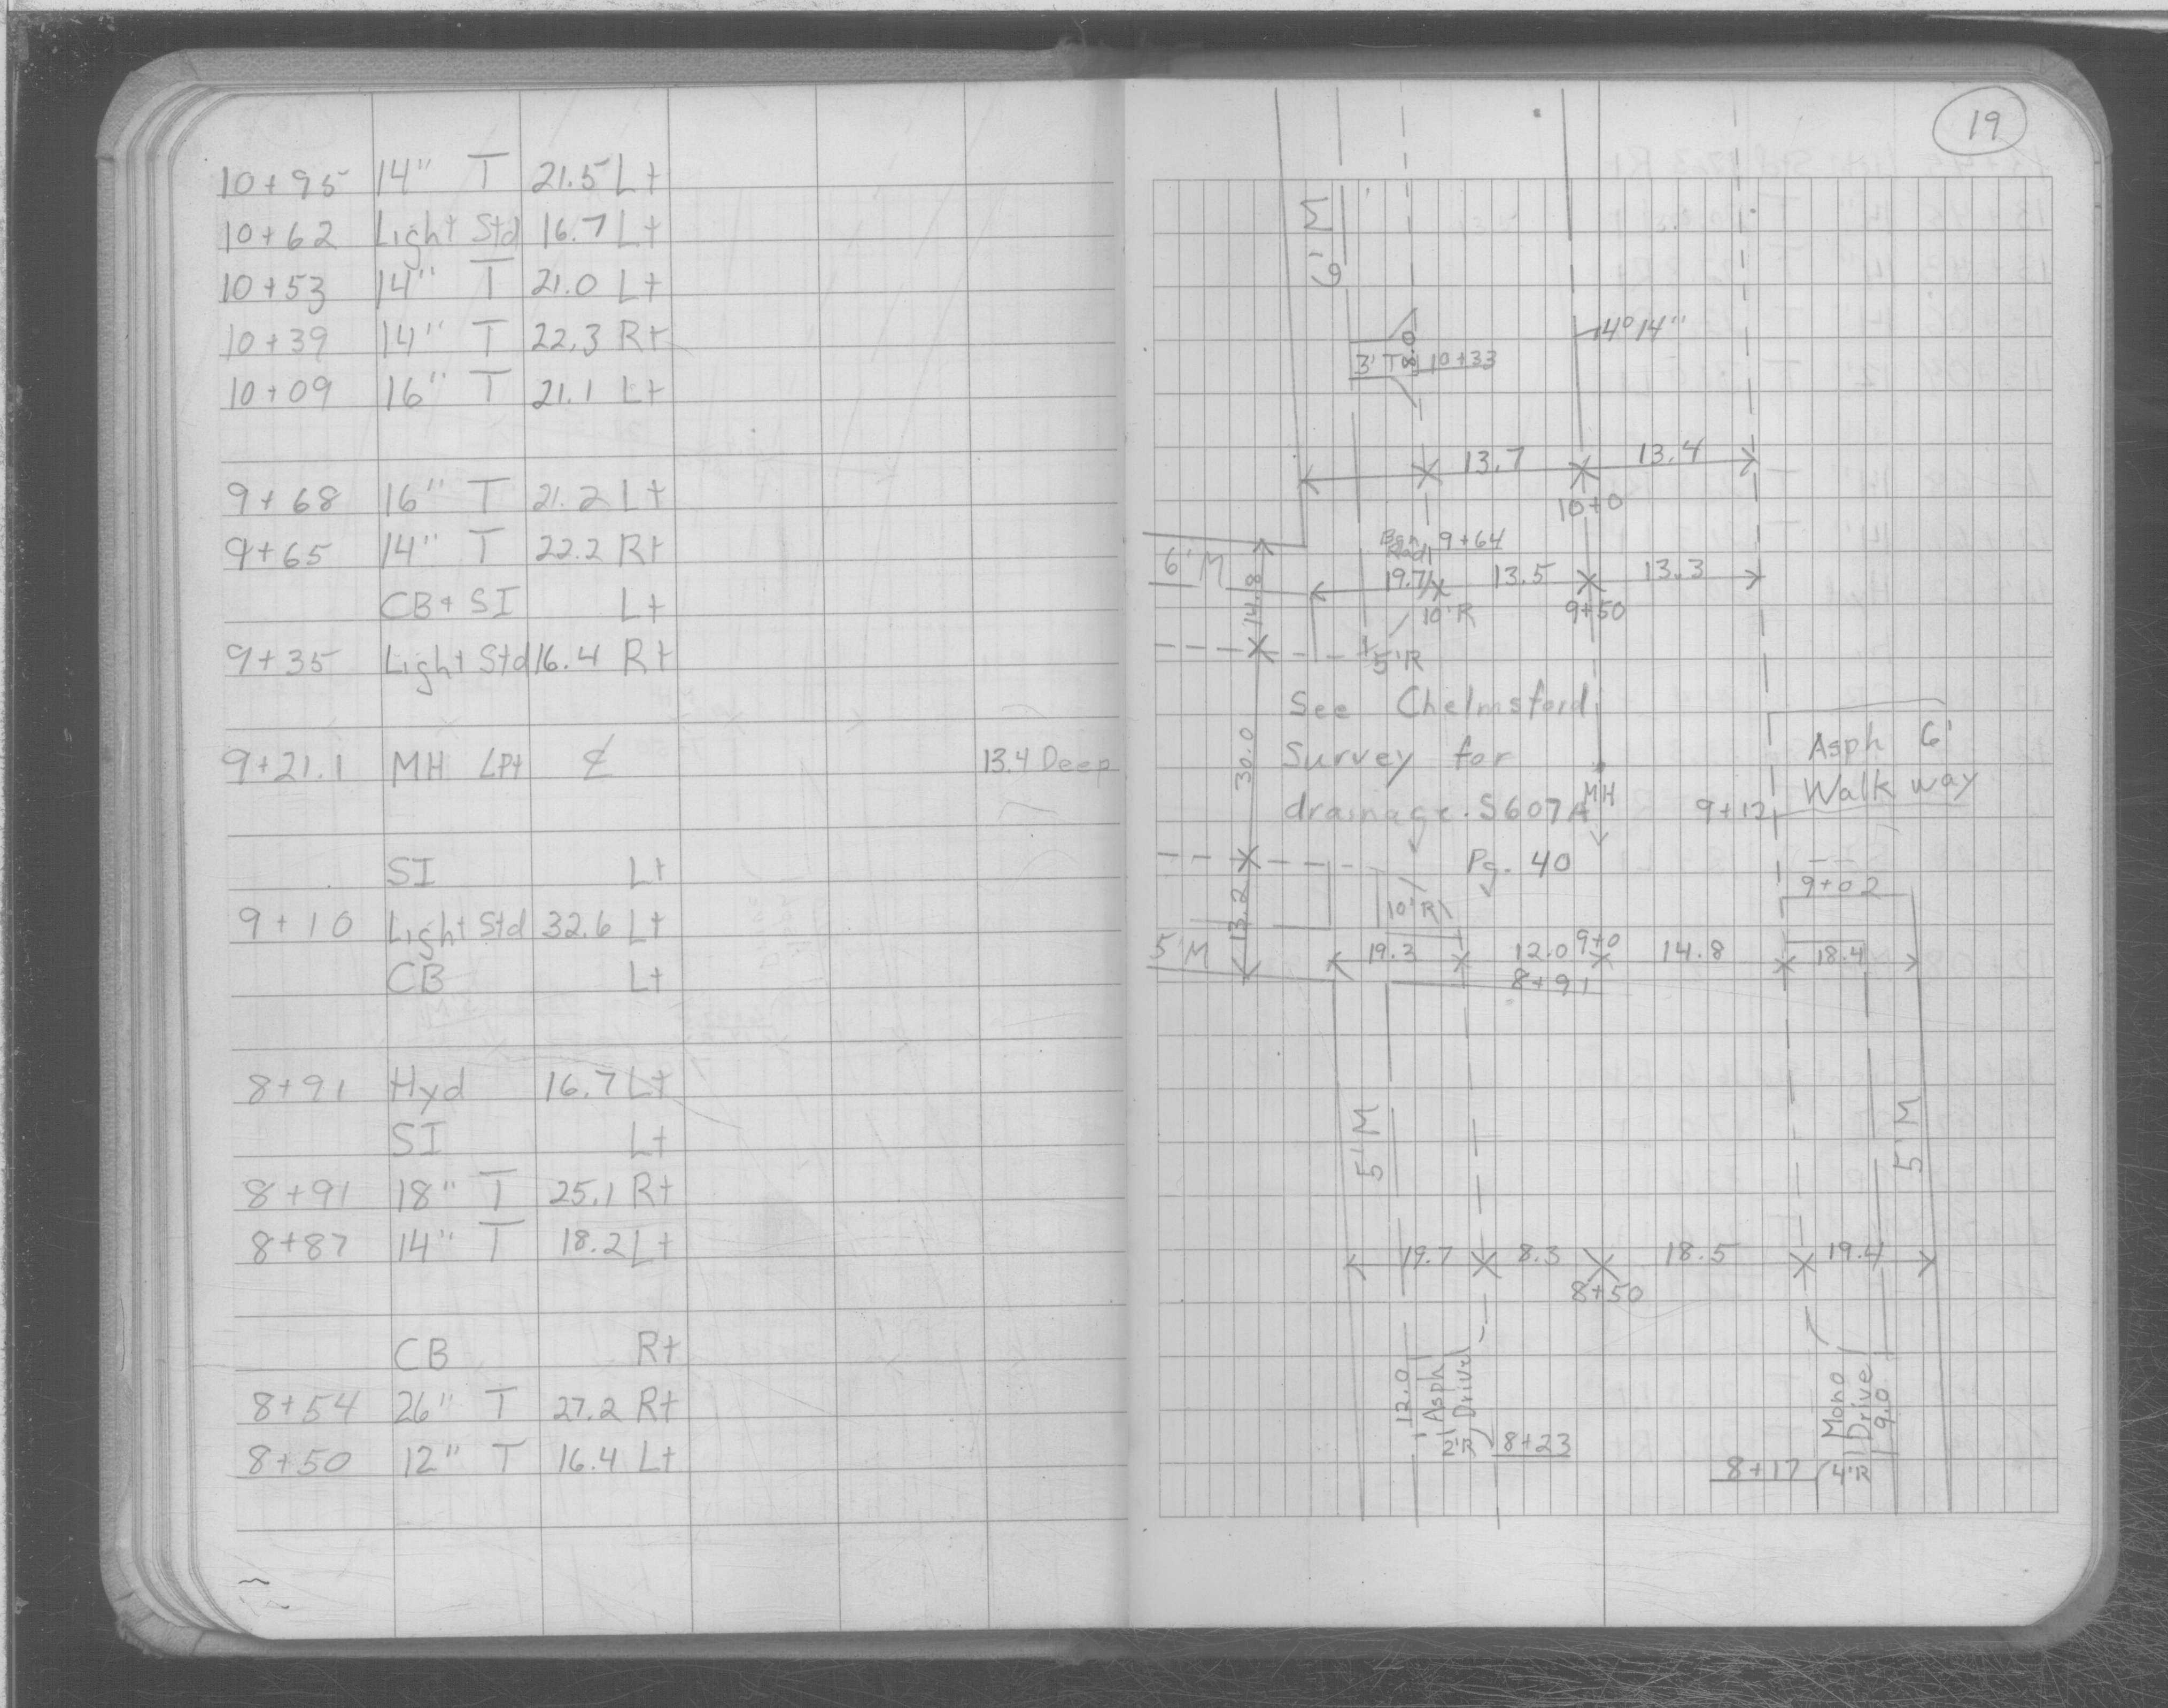 10+95 14" T 21.5 Lt
10+62 Light Std 16.7 Lt
10+53 14" T 21.0 Lt
10+39 14" T 22.3 Rt
10+09 16" T 21.1 Lt
9+68 16" T 21.2 Lt
9+65 14" T 22.2 Rt
CB+SI Lt
9+35 Light Std 16.4 Rt
9+21.1 MH LPt ₵ 13.4 Deep
SI Lt
9+10 Light Std 32.6 Lt
CB Lt
8+91 Hyd 16.7 Lt
SI Lt
8+91 18" T 25.1 Rt
8+87 14" T 18.2 Lt
CB Rt
8+54 26" T 27.2 Rt
8+50 12" T 16.4 Lt
19
6' M
4°14"
8.0
3' T 10+33
13.7 13.4
10+0
9+64
6' M 14.8 19.7 13.5 13.3
10'R 9+50
5'R
See Chelmsford
Survey for
drainage. S607A
Pg. 40
30.0
MH
Asph 6'
Walk way
9+12
9+02
13.2
10'R
5'M 19.3 12.0 9+0 14.8 18.4
8+91
5'M 5'M
19.7 8.3 18.5 19.4
8+50
12.0
Asph
Drive
2'R 8+23
Mono
Drive
9.0
8+17 4'R